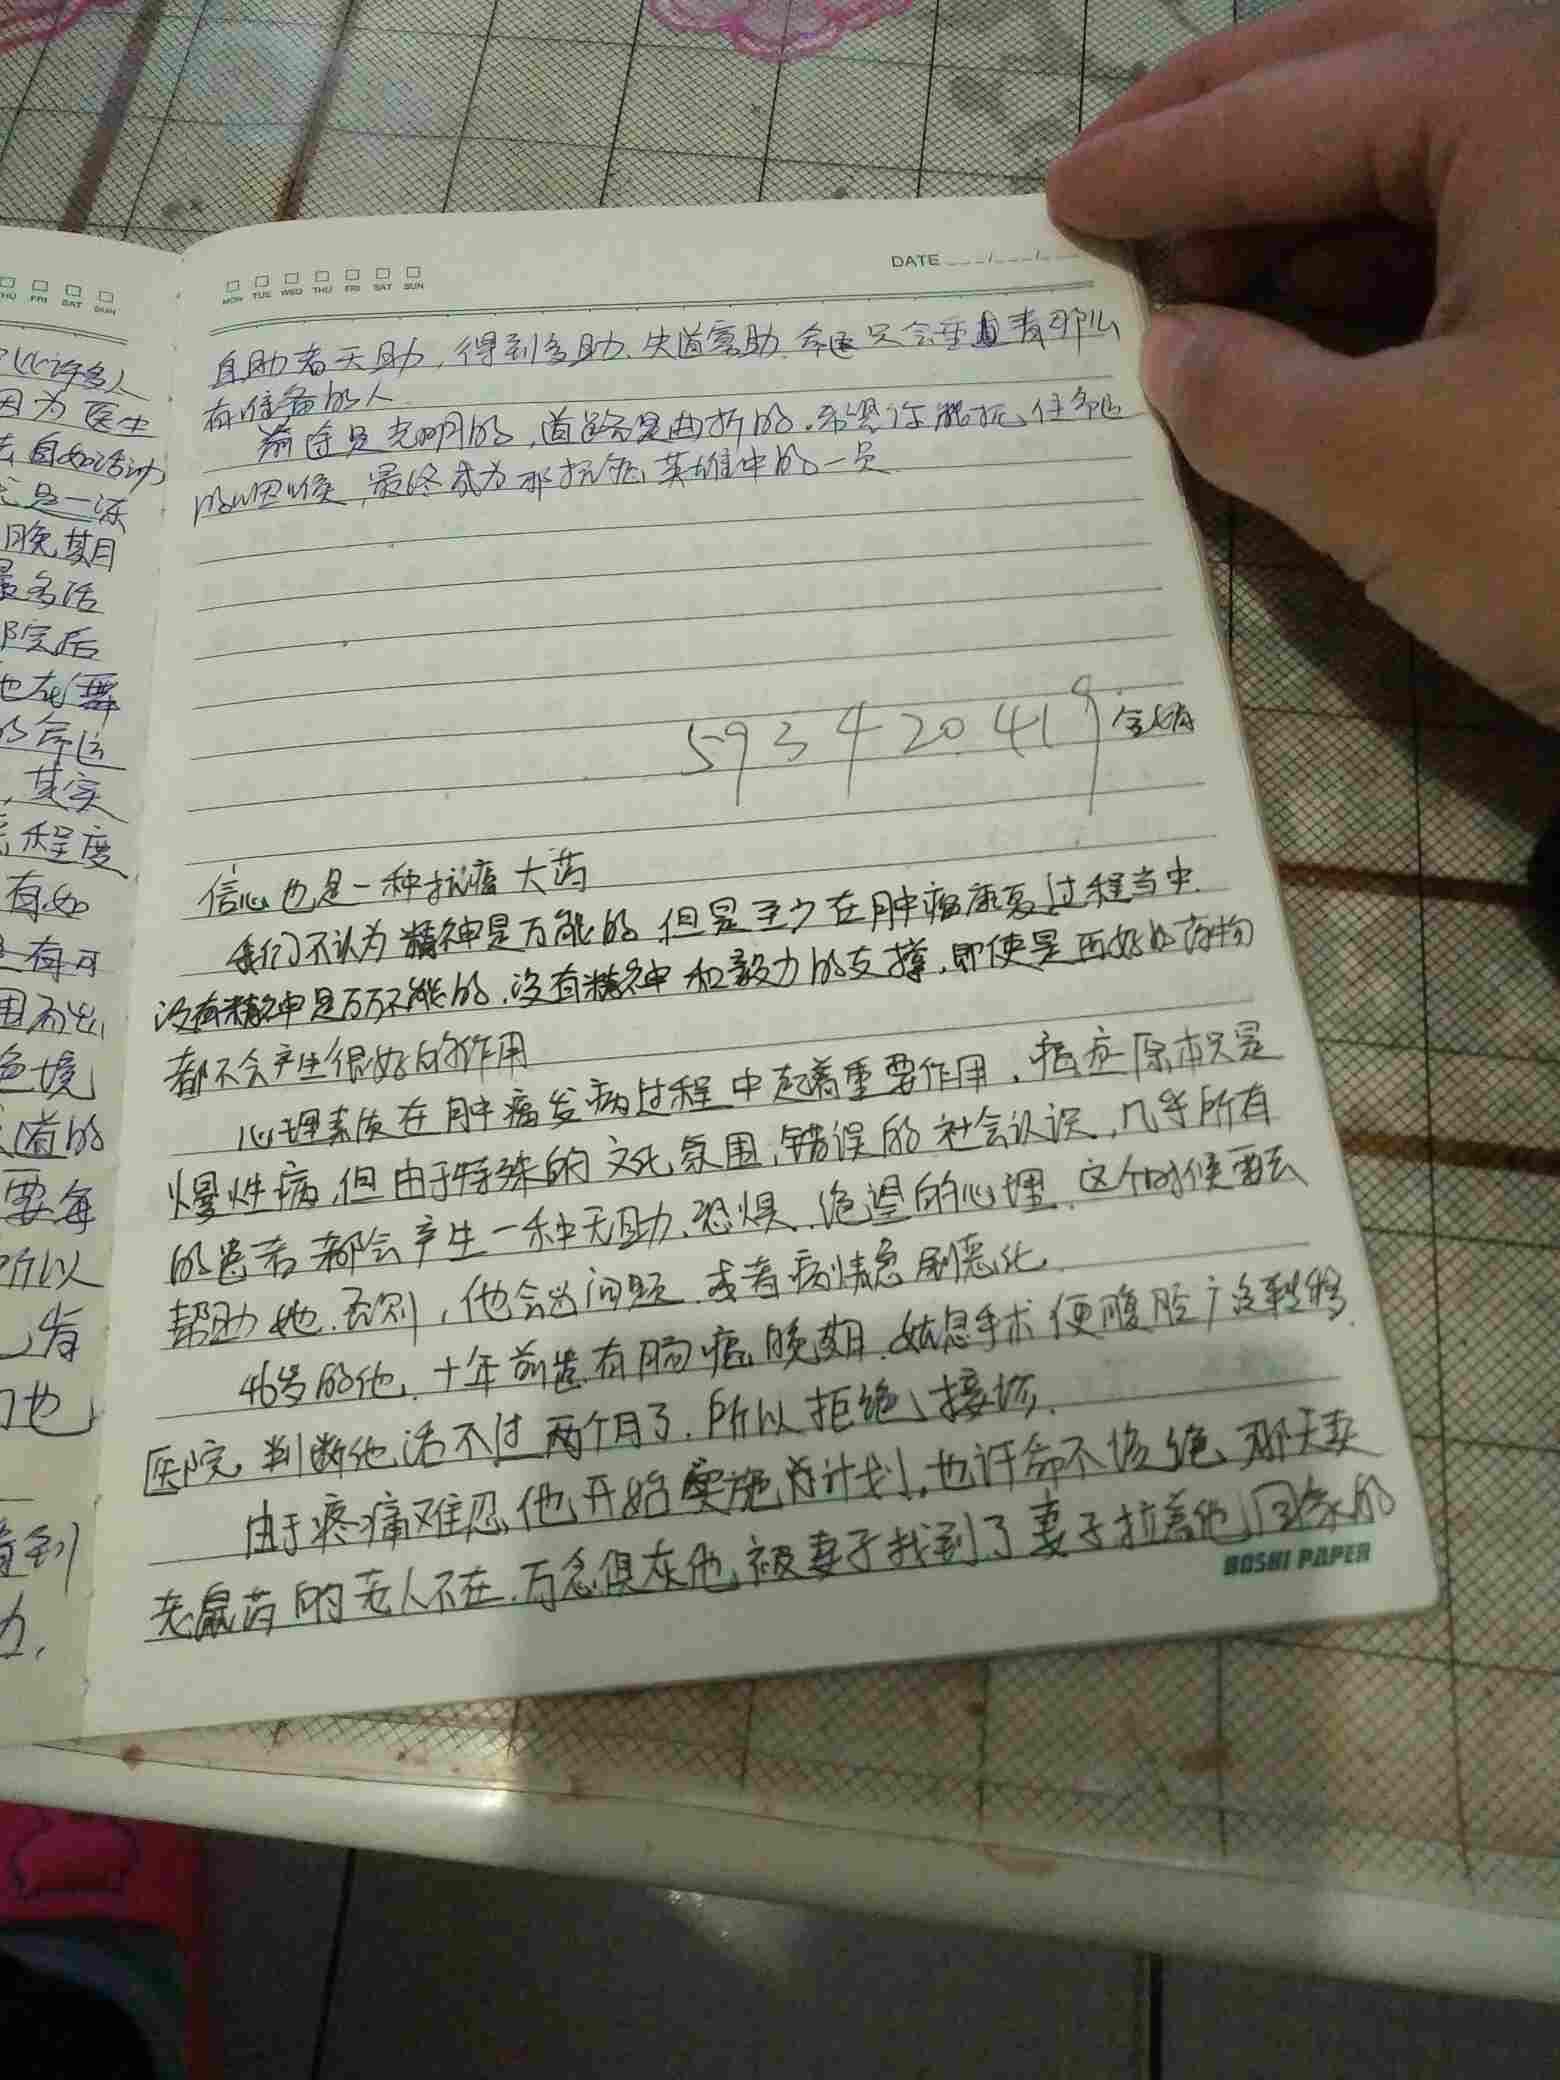 THU FRI SAT SUN
因为医生
自如活动
是一冻
晚期
最多活
院后
也在舞
的命运
,其实
程度
有如
是有可
围而出
绝境
道的
要每
所以
有
们也
力,
MON TUE WED THU FRI SAT SUN
DATE
自助者天助,得到多助、失道寡助、命运只会垂直青那么
有准备的人
前途是光明的,道路是曲折的.希望你能抗住命运
的咽喉,最终成为那抗癌英雄中的一员
593420.419
信心也是一种抗癌大药
我们不认为精神是万能的.但是至少在肿瘤康复过程当中.
没有精神是万万不能的.没有精神和毅力的支撑.即使是再好的药物
都不会产生很好的作用
心理素质在肿瘤发病过程中起着重要作用.癌症原本只是
慢性病,但由于特殊的文化氛围,错误的社会认识,几乎所有
的患者都会产生一种无助、恐惧、绝望的心理.这个时候要去
帮助他.否则,他会出问题.或者病情急剧恶化.
46岁的他.十年前患有肠癌晚期.姑息手术便腹腔广泛转移.
医院判断他活不过两个月了.所以拒绝接坊.
由于疼痛难忍他开始实施计划.也许命不该绝、那天卖
老鼠药的老人不在.万念俱灰他被妻子找到了妻子拉着他回家的
BOSHI PAPER